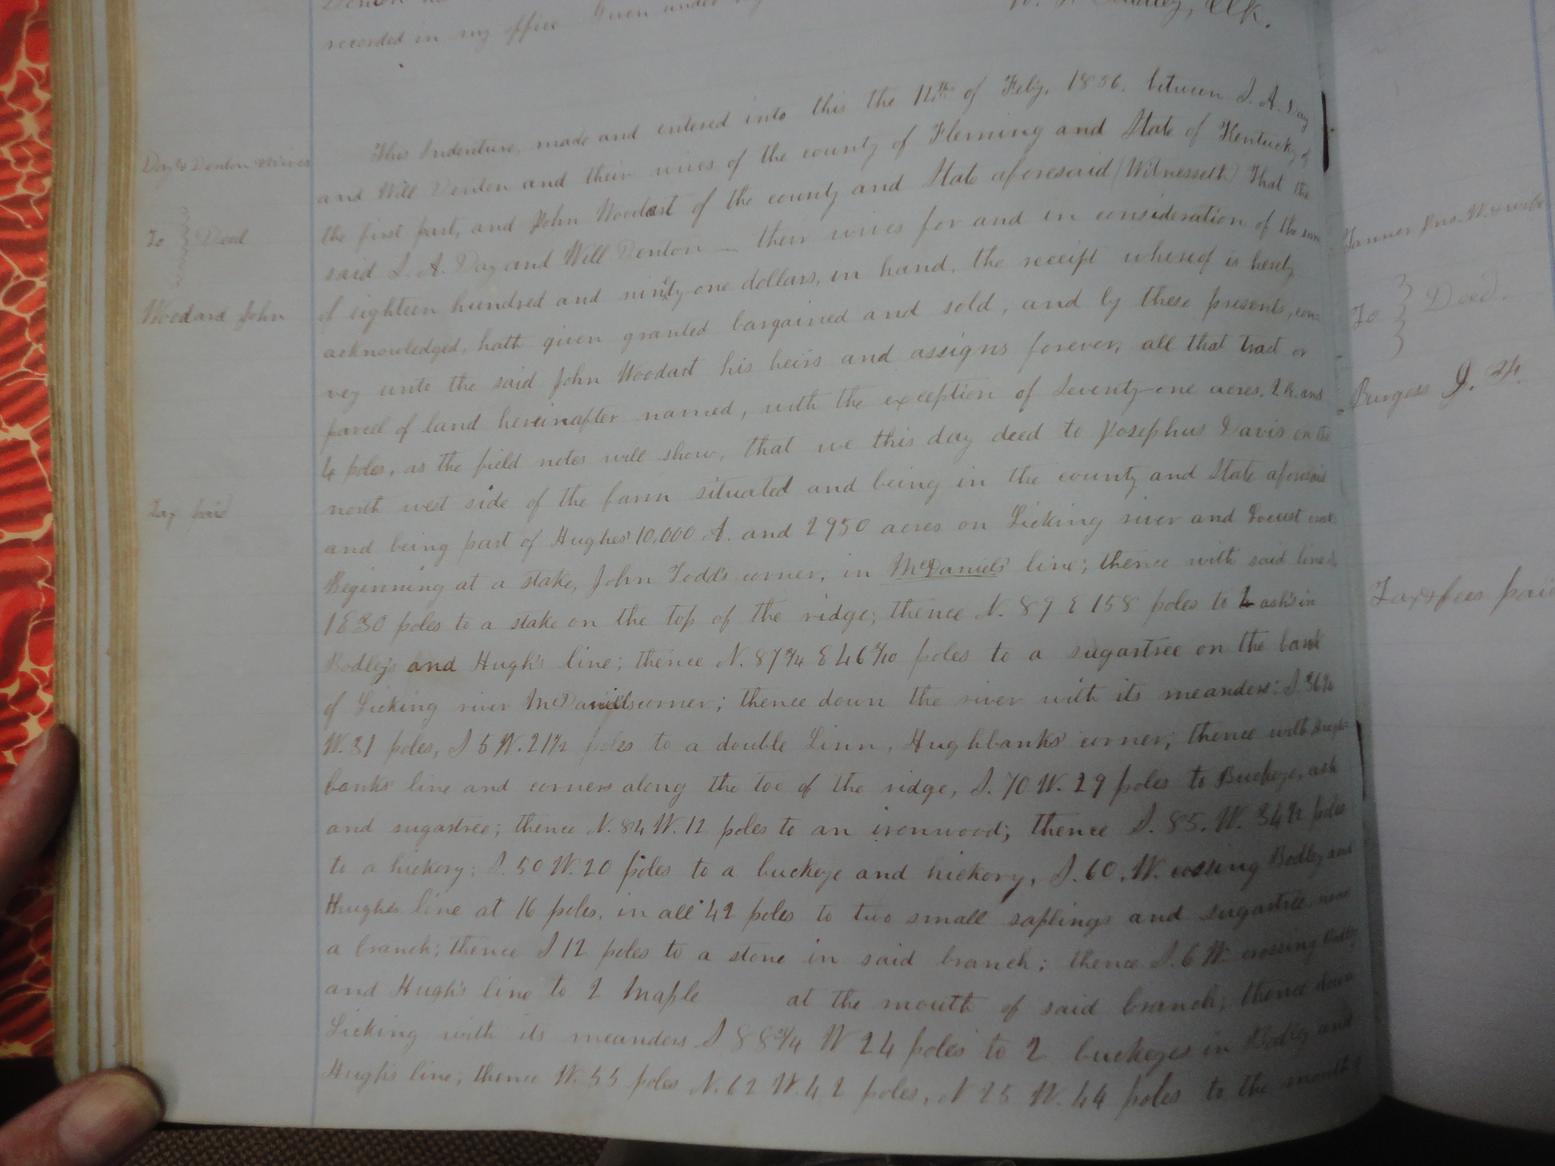 recorded in my office Given under my
Clk.
Day & Denton & wives
To Deed
Woodard John
Tax paid
This Indenture, made and entered into this the 12th of Feby, 1856. between S. A. Day
and Will Denton and their wives of the county of Fleming and State of Kentucky of
the first part, and John Woodart of the county and State aforesaid (Witnesseth) That the
said S. A. Day and Will Denton — their wives for and in consideration of the sum
of eighteen hundred and ninty-one dollars, in hand, the receipt whereof is herely
acknowledged, hath given granted bargained and sold, and by these presents, con-
vey unto the said John Woodart his heirs and assigns forever, all that tract or
parcel of land hereinafter named, with the exception of Seventy-one acres. 2 R. and
4 poles, as the field notes will show, that we this day deed to Josephus Davis on the
north west side of the farm situated and being in the county and State aforesaid
and being part of Hughes' 10,000 A. and 2950 acres on Licking river and Locust
Beginning at a stake, John Todd's corner, in McDaniels line; thence with said line S.
1 E 30 poles to a stake on the top of the ridge; thence N. 89 E 158 poles to 2 ash's in
Bodley's and Hugh's line; thence N. 87 3/4 E 46 6/10 poles to a sugartree on the bank
of Licking river McDaniels corner; thence down the river with its meanders: S. 36 1/2
W. 31 poles, S 5 W. 21 1/2 poles to a double Linn, Hughbanks' corner; thence with Hugh-
banks' line and corners along the toe of the ridge, S. 70 W. 29 poles to Buckeye, ash
and sugartree; thence N. 84 W. 12 poles to an ironwood; thence S. 85. W. 34 1/2 poles
to a hickory; S. 50 W. 20 poles to a buckeye and hickory, S. 60. W. crossing Bodley and
Hughes line at 16 poles, in all 42 poles to two small saplings and sugartree near
a branch; thence S 12 poles to a stone in said branch; thence S. 6 W. crossing Bodley
and Hugh's line to 2 Maple at the mouth of said branch; thence down
Licking with its meanders S 88 3/4 W 24 poles to 2 buckeyes in Bodley and
Hugh's line; thence W. 55 poles N. 62 W. 42 poles, N 25 W. 44 poles to the mouth of
Tanner Jno. W. & wife
To Deed.
Burgess J. H.
Tax & fees paid